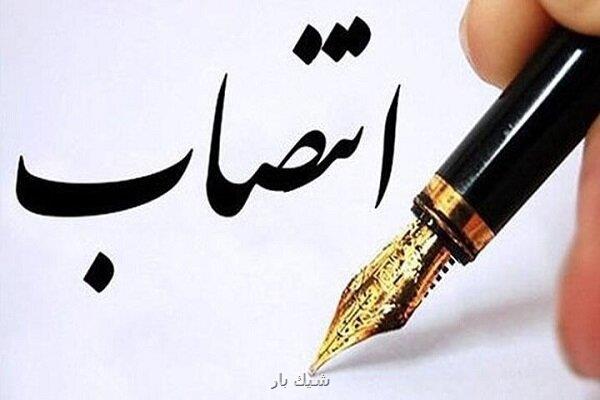 انتصاب
شیك بار